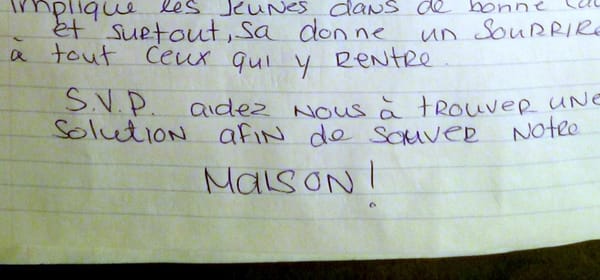 implique les jeunes dans de bonne
et surtout, sa donne un sourrire
à tout ceux qui y rentre.
S.V.P. aidez nous à trouver une
solution afin de sauver notre
MAISON!